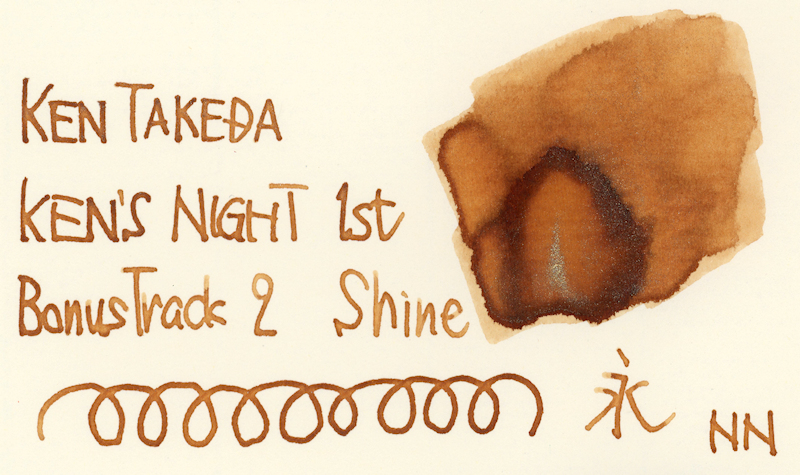 KEN TAKEDA
KEN'S NIGHT 1st
Bonus Track 2 Shine
永
NN